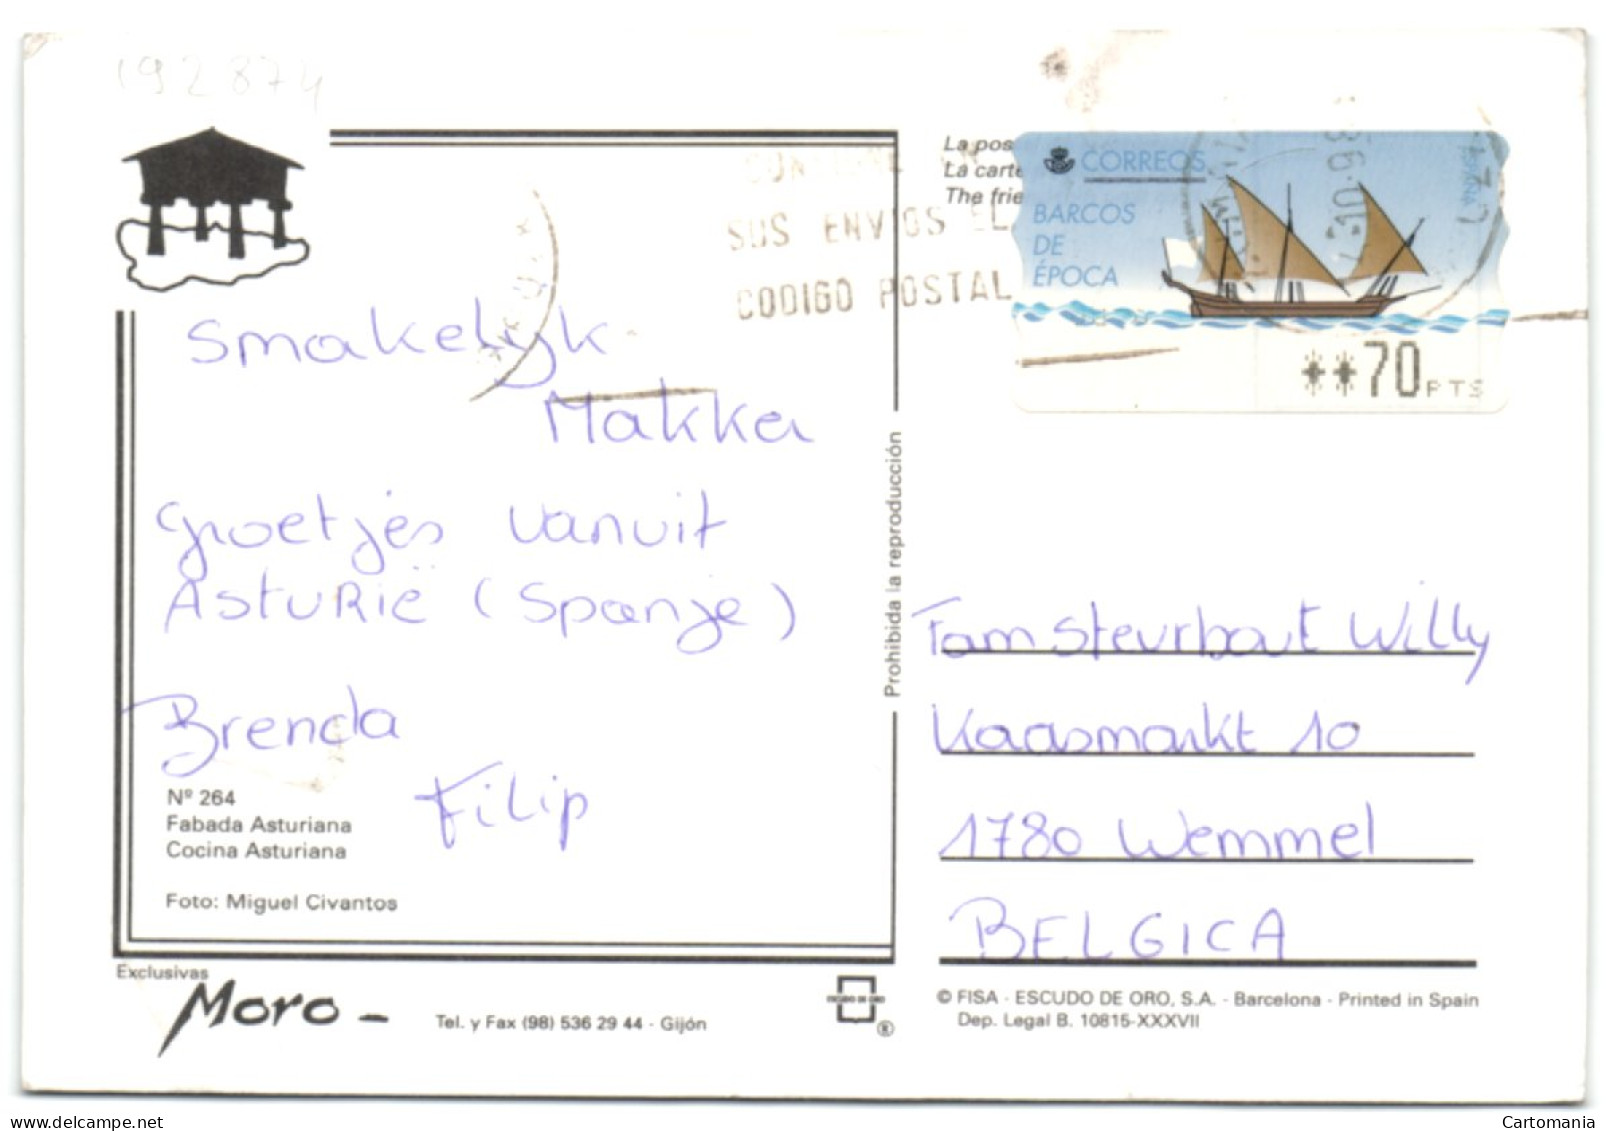 192874
La pos
La carte
The frie
SUS ENVIOS EL
CODIGO POSTAL
CORREOS
BARCOS
DE
ÉPOCA
ESPAÑA
**70 PTS
Smakelijk
Makker
Groetjes vanuit
Asturië (Spanje)
Brenda
Filip
Nº 264
Fabada Asturiana
Cocina Asturiana
Foto: Miguel Civantos
Prohibida la reproducción
Fam Steurbaut Willy
Kaasmarkt 10
1780 Wemmel
BELGICA
Exclusivas
Moro -
Tel. y Fax (98) 536 29 44 - Gijón
ESCUDO DE ORO
®
© FISA - ESCUDO DE ORO, S.A. - Barcelona - Printed in Spain
Dep. Legal B. 10815-XXXVII
Cartomania